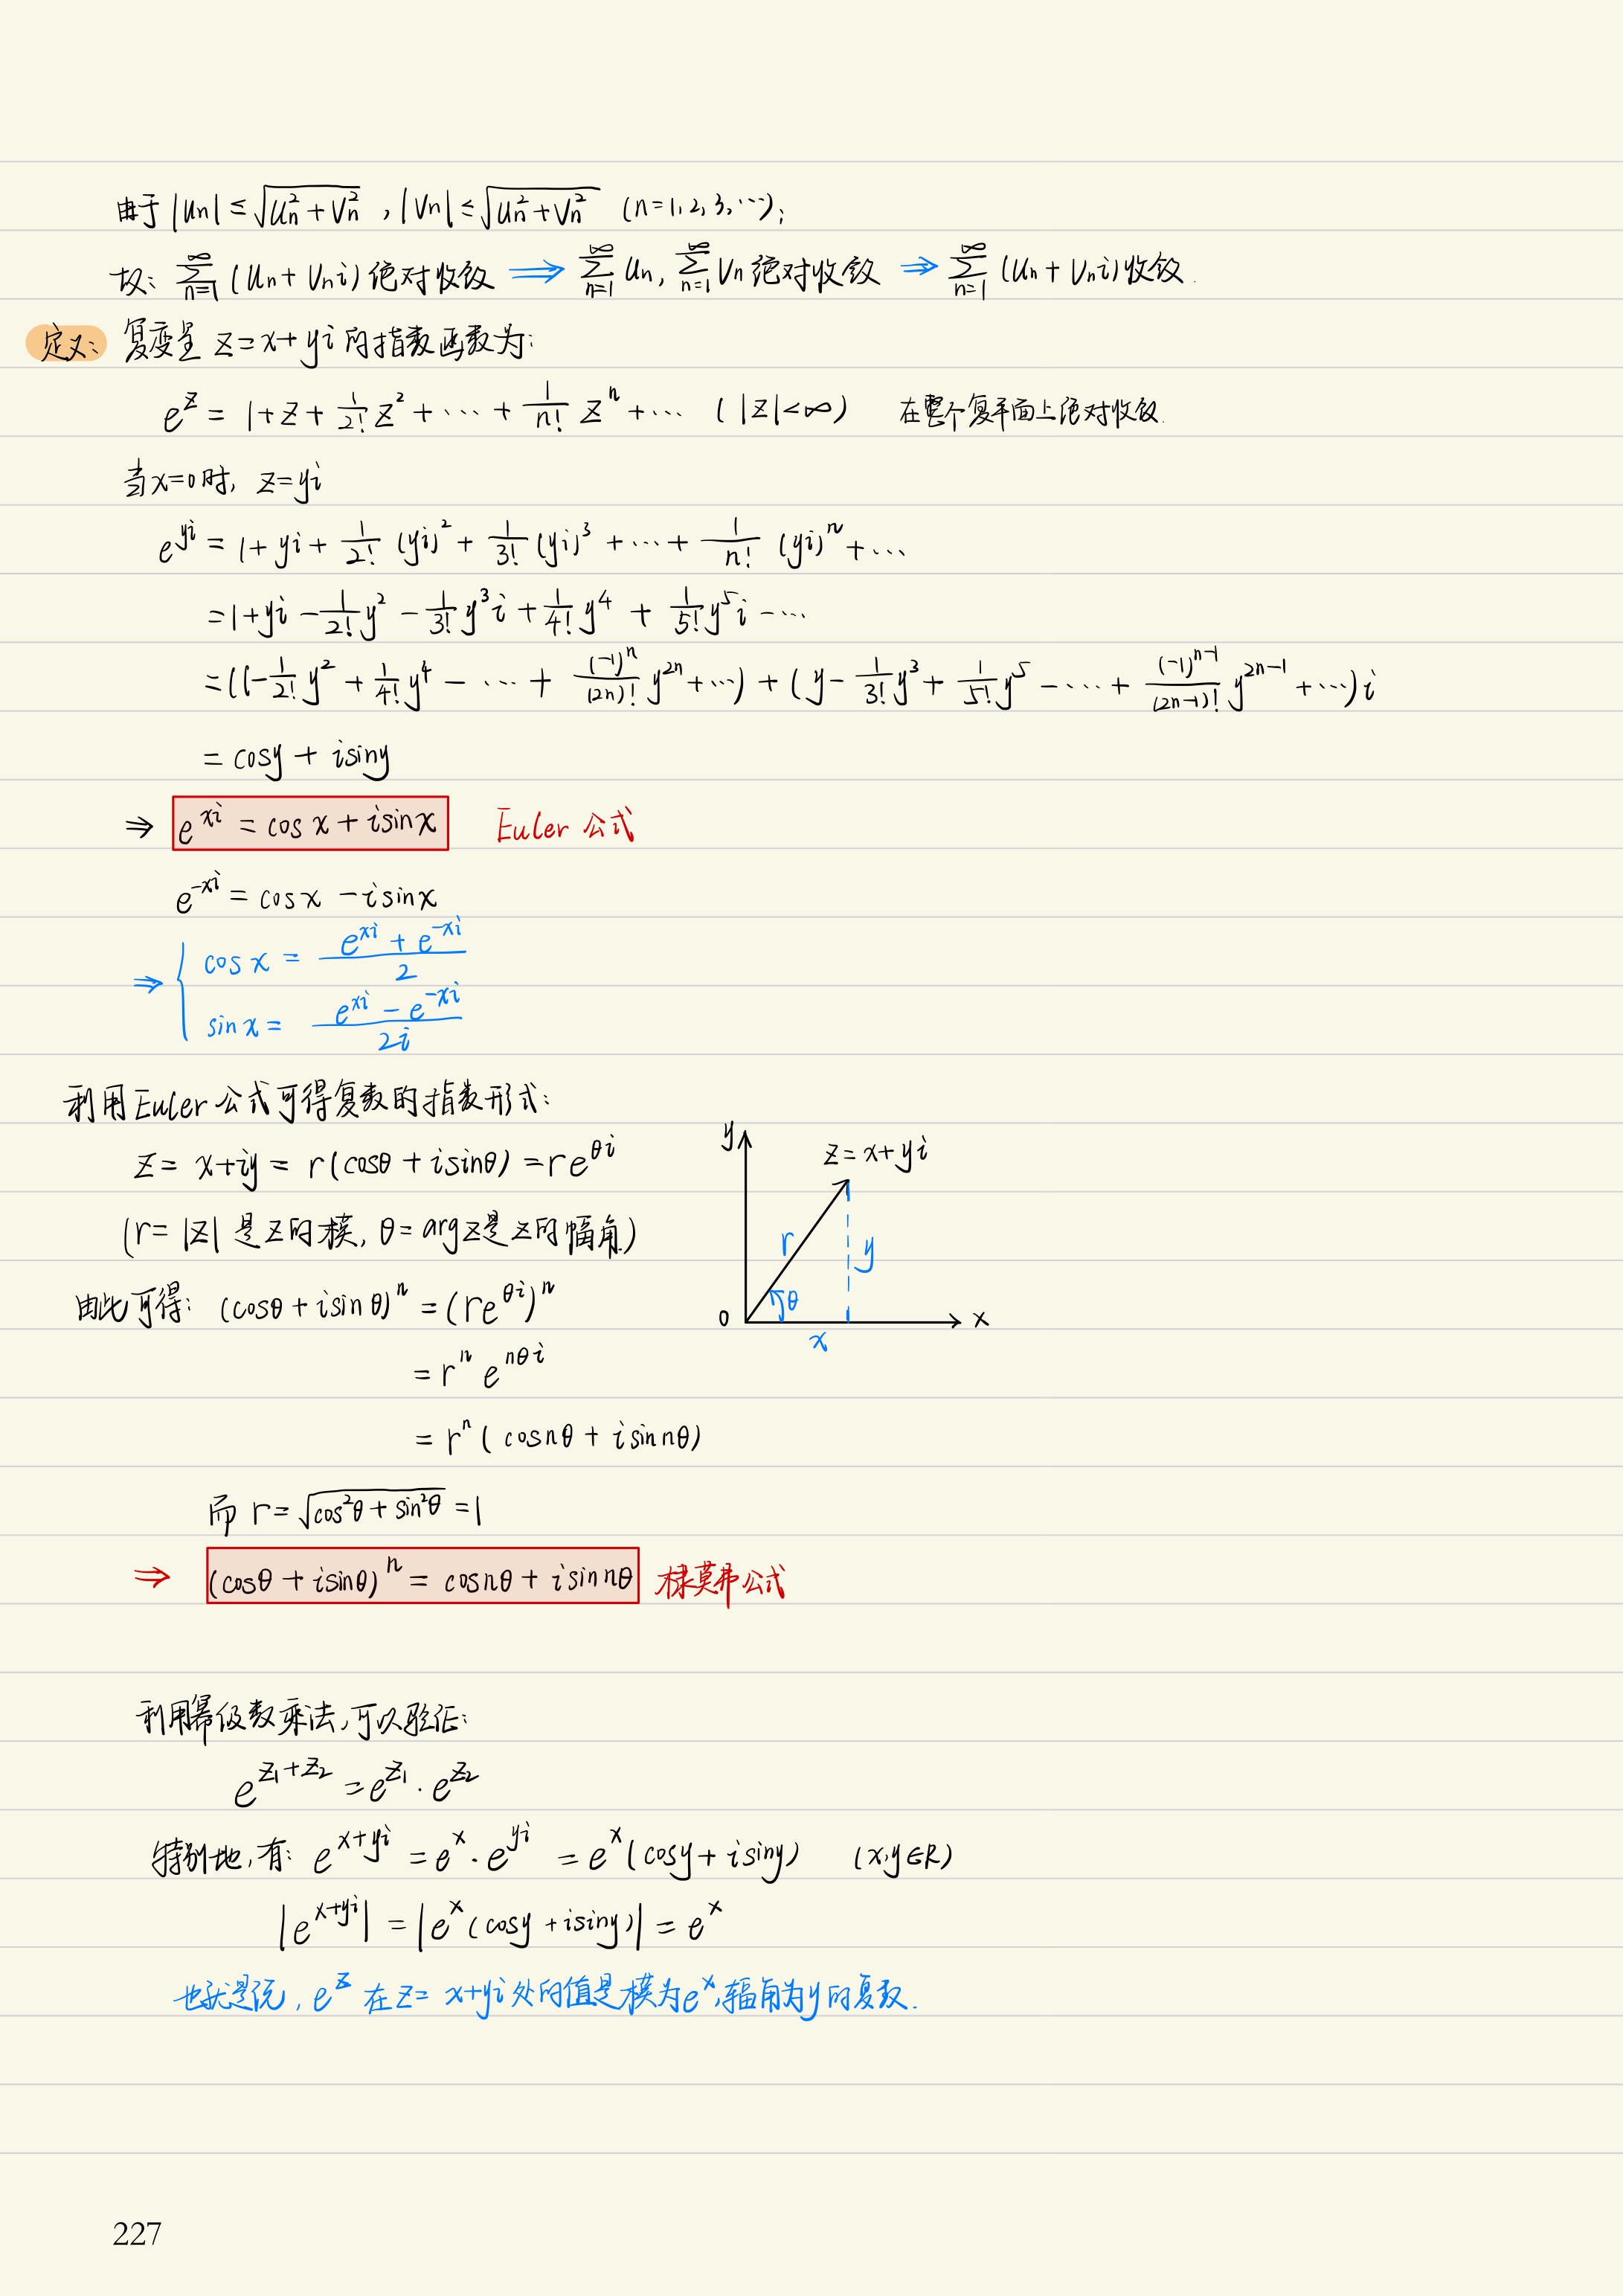 由于 |un| ≤ √(un² + vn²) , |vn| ≤ √(un² + vn²) (n=1, 2, 3, ⋯);
故: ∑_{n=1}^{∞} (un + vn i) 绝对收敛 ⟹ ∑_{n=1}^{∞} un, ∑_{n=1}^{∞} vn 绝对收敛 ⟹ ∑_{n=1}^{∞} (un + vn i) 收敛.
定义: 复变量 z = x + yi 的指数函数为:
e^z = 1 + z + 1/2! z² + ⋯ + 1/n! z^n + ⋯ ( |z| < ∞ ) 在整个复平面上绝对收敛.
当 x=0 时, z = yi
e^{yi} = 1 + yi + 1/2! (yi)² + 1/3! (yi)³ + ⋯ + 1/n! (yi)^n + ⋯
= 1 + yi − 1/2! y² − 1/3! y³ i + 1/4! y⁴ + 1/5! y⁵ i − ⋯
= (1 − 1/2! y² + 1/4! y⁴ − ⋯ + (−1)^n/(2n)! y^{2n} + ⋯) + (y − 1/3! y³ + 1/5! y⁵ − ⋯ + (−1)^{n−1}/(2n−1)! y^{2n−1} + ⋯) i
= cosy + isiny
⇒ e^{xi} = cos x + isinx Euler 公式
e^{−xi} = cosx − isinx
⇒ { cos x = (e^{xi} + e^{−xi})/2
sin x = (e^{xi} − e^{−xi})/2i
利用Euler 公式可得复数的指数形式:
z = x + iy = r(cosθ + isinθ) = re^{θi}
(r = |z| 是 z 的模, θ = argz 是 z 的幅角)
y
z = x + yi
r
y
θ
0
x
x
由此可得: (cosθ + isinθ)^n = (re^{θi})^n
= r^n e^{nθi}
= r^n ( cosnθ + isin nθ)
而 r = √(cos²θ + sin²θ) = 1
⇒ (cosθ + isinθ)^n = cosnθ + isin nθ 棣莫弗公式
利用幂级数乘法,可以验证:
e^{z₁+z₂} = e^{z₁} · e^{z₂}
特别地,有: e^{x+yi} = e^x · e^{yi} = e^x (cosy + isiny) (x,y∈R)
|e^{x+yi}| = |e^x (cosy + isiny)| = e^x
也就是说, e^z 在 z = x + yi 处的值是模为 e^x,辐角为 y 的复数.
227